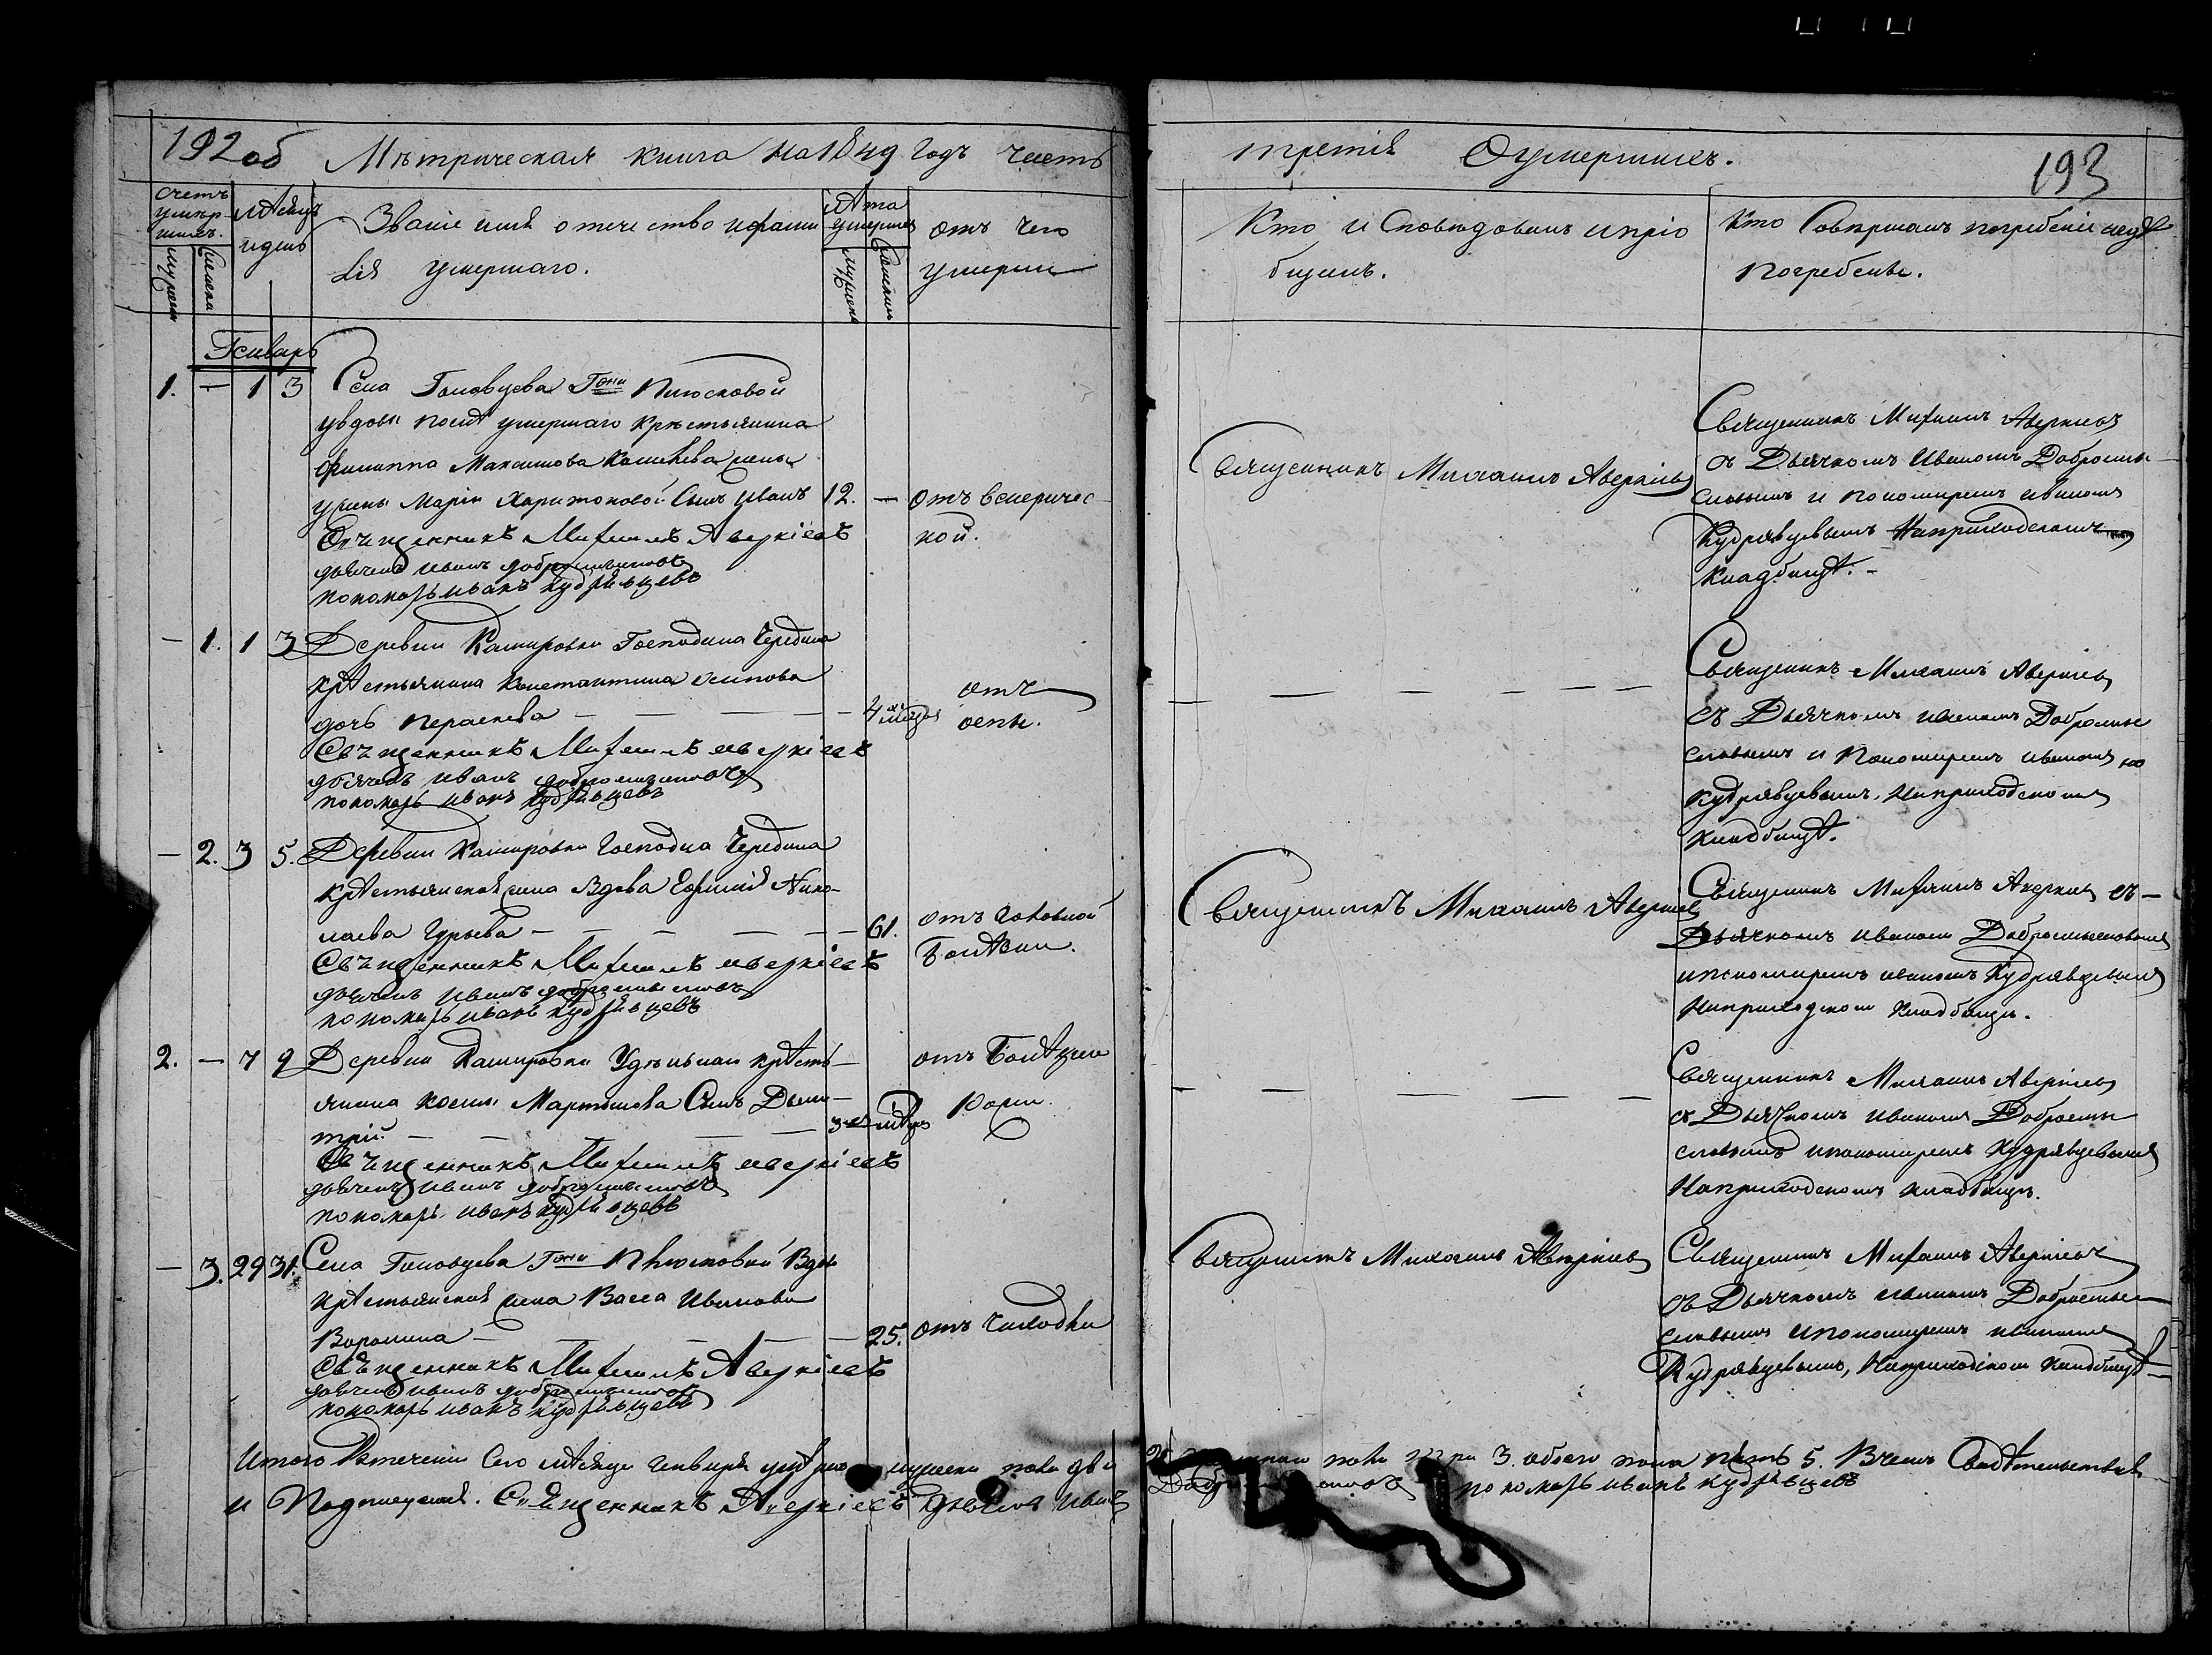 192 об Метрическая книга на 1849 годъ часть
третія О умершихъ.
193
Счетъ умер-
шихъ.
мужеска
женска
Мѣсяцъ
и день
Званіе имя отечество и фами
лія умершаго.
Лѣта
умершаго
мужеска
женска
отъ чего
умерли
Кто исповѣдовалъ и прio
бщилъ.
Кто совершалъ погребеніе и гдѣ
погребены.
Генварь
1. — 1 3 Села Головцева Гжи Плюсковой
у вдовы послѣ умершаго крестьянина
Филиппа Максимова жены
Маріи Харитоновой сынъ Иванъ 12. — отъ венеричес-
кой.
Священникъ Михаилъ Аверкіевъ
дьячекъ Иванъ Добромысловъ
пономарь Иванъ Кудрявцевъ
Священникъ Михаилъ Аверкіевъ
Священникъ Михаилъ Аверкіевъ
съ Дьячкомъ Иваномъ Добромы-
словымъ и пономаремъ Иваномъ
Кудрявцевымъ На приходскомъ
кладбищѣ.-
— 1. 1 3 Деревни Кашировки Господина Чередина
крѣстьянина Константина Осипова
дочь Парасковья — — — — 4 мѣсяц отъ
оспы.
Священникъ Михаилъ Аверкіевъ
дьячекъ Иванъ Добромысловъ
пономарь Иванъ Кудрявцевъ
— — — — — —
Священникъ Михаилъ Аверкіевъ
съ Дьячкомъ Иваномъ Добромы
словымъ и Пономаремъ Иваномъ
Кудрявцевымъ, На приходскомъ
кладбищѣ.
— 2. 3 5. Деревни Кашировки Господина Чередина
крѣстьянская жена Вдова Ефимія Нико-
лаева Гурьева — — — — — 61. отъ головной
болѣзни.
Священникъ Михаилъ Аверкіевъ
дьячекъ Иванъ Добромысловъ
пономарь Иванъ Кудрявцевъ
Священникъ Михаилъ Аверкіевъ
Священникъ Михаилъ Аверкіевъ съ —
Дьячкомъ Иваномъ Добромысловымъ
и пономаремъ Иваномъ Кудрявцевымъ
На приходскомъ кладбищѣ.
2. — 7 9 Деревни Кашировки Удѣльнаго крѣсть-
янина Космы Мартынова Сынъ Дми-
трій. — — — — — 3 мѣсяц отъ болѣзни
кори.
Священникъ Михаилъ Аверкіевъ
дьячекъ Иванъ Добромысловъ
пономарь Иванъ Кудрявцевъ
— — — — — —
Священникъ Михаилъ Аверкіевъ
съ Дьячкомъ Иваномъ Добромы
словымъ и пономаремъ Кудрявцевымъ
На приходскомъ кладбищѣ.
— 3. 29 31. Села Головцева Гжи Плюсковой Вдова
крѣстьянская жена Васса Иванова
Воронина — — — — — 25. отъ чихотки
Священникъ Михаилъ Аверкіевъ
дьячекъ Иванъ Добромысловъ
пономарь Иванъ Кудрявцевъ
Священникъ Михаилъ Аверкіевъ
Священникъ Михаилъ Аверкіевъ
съ Дьячкомъ Иваномъ Добромы-
словымъ и пономаремъ Иваномъ
Кудрявцевымъ, На приходскомъ кладбищѣ
Итого в теченіи Сего мѣсяца Генваря мужеска пола два
2 женска пола три 3. обоего пола пять 5. В чемъ Свидѣтельствуемъ
и Подпишемся. Священникъ Аверкіевъ дьячекъ Иванъ
Добромысловъ пономарь Иванъ Кудрявцевъ